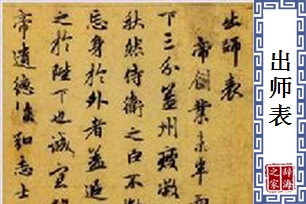 出師表
帝創業未半
下三分益州疲敝
秋然侍衛之臣不懈
忘身於外者蓋追
之於陛下也誠宜
帝遺德恢弘志士
出师表
辞海
之家